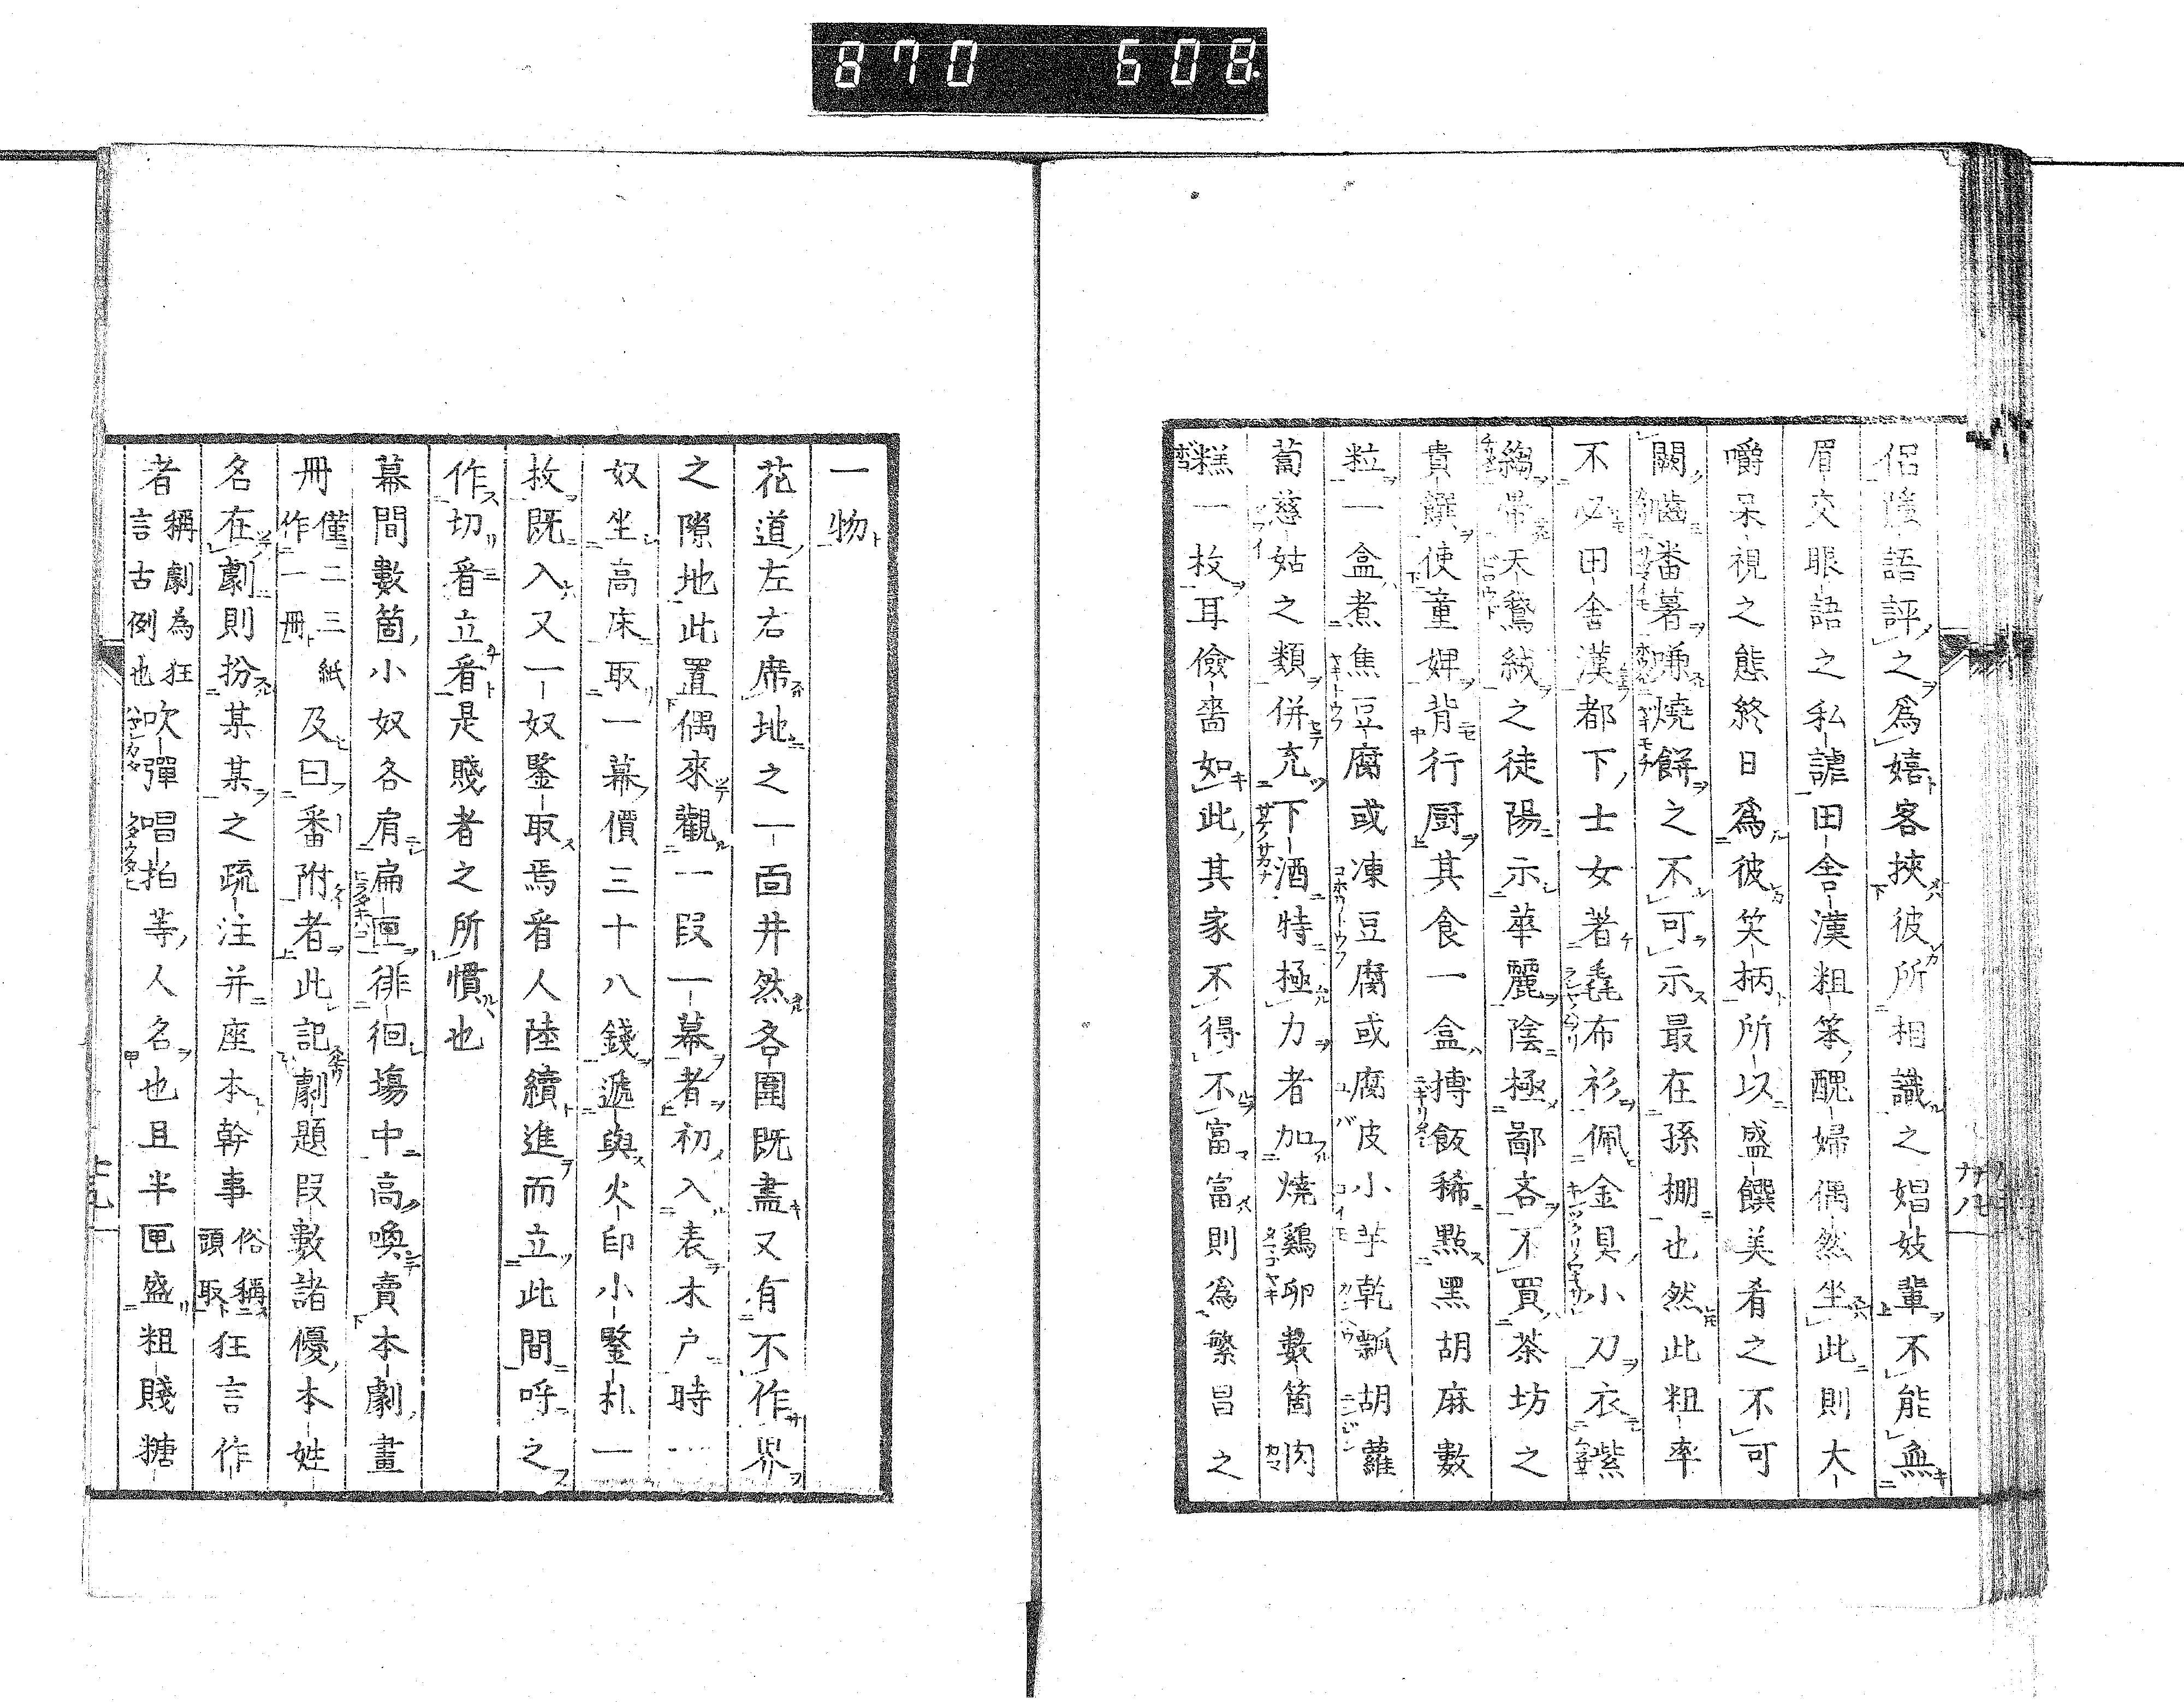 870 608
侶隣語評之爲嬉客挾彼所相識之娼妓輩不能無
眉交眼語之私謔田舎漢粗笨醜婦偶然坐此則大
嚼呆視之態終日爲彼笑柄所以盛饌美肴之不可
闕齒番薯嗛燒餅之不可示最在孫棚也然此粗率
不必田舎漢都下士女著毳布衫佩金具小刀衣紫
縐帶天鵞絨之徒陽示華麗陰極鄙吝不買茶坊之
貴饌使童婢背行厨其食一盒摶飯稀點黑胡麻數
粒一盒煮焦豆腐或凍豆腐或腐皮小芋乾瓢胡蘿
蔔慈姑之類併充下酒特極力者加燒鷄卵數箇肉
糕一枚耳儉嗇如此其家不得不富富則爲繁昌之
一物
花道左右席地之一面井然各圍既盡又有不作界
之隙地此置偶來觀一段一幕者初入表木戸時一
奴坐高床取一幕價三十八錢遞與火印小鑒札一
枚既入又一奴鑒取焉看人陸續進而立此間呼之
作切看立看是賤者之所慣也
幕間數箇小奴各肩扁匣徘徊塲中高喚賣本劇畫
冊僅二三紙作一冊及曰番附者此記劇題段數諸優本姓
名在劇則扮某某之疏注并座本幹事俗稱頭取狂言作
者稱劇為狂言古例也吹彈唱拍等人名也且半匣盛粗賤糖